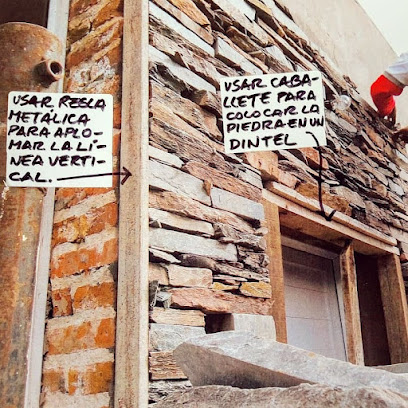 USAR REGLA
METÁLICA
PARA APLO-
MAR LA LÍ-
NEA VERTI-
CAL.
USAR CABA-
LLETE PARA
COLOCAR LA
PIEDRA EN UN
DINTEL